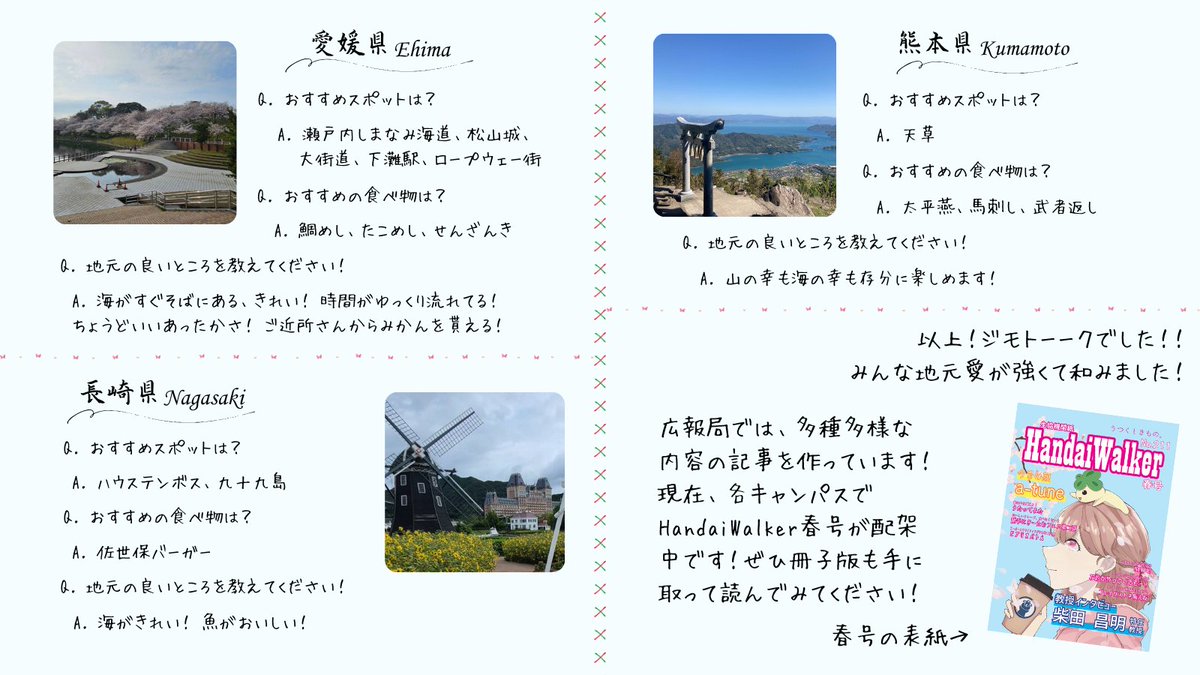 愛媛県 Ehima
Q. おすすめスポットは？
A. 瀬戸内しまなみ海道、松山城、
大街道、下灘駅、ロープウェー街
Q. おすすめの食べ物は？
A. 鯛めし、たこめし、せんざんき
Q. 地元の良いところを教えてください！
A. 海がすぐそばにある、きれい！ 時間がゆっくり流れてる！
ちょうどいいあったかさ！ ご近所さんからみかんを貰える！
長崎県 Nagasaki
Q. おすすめスポットは？
A. ハウステンボス、九十九島
Q. おすすめの食べ物は？
A. 佐世保バーガー
Q. 地元の良いところを教えてください！
A. 海がきれい！ 魚がおいしい！
熊本県 Kumamoto
Q. おすすめスポットは？
A. 天草
Q. おすすめの食べ物は？
A. 太平燕、馬刺し、武者返し
Q. 地元の良いところを教えてください！
A. 山の幸も海の幸も存分に楽しめます！
以上！ジモトーークでした！！
みんな地元愛が強くて和みました！
広報局では、多種多様な
内容の記事を作っています！
現在、各キャンパスで
HandaiWalker春号が配架
中です！ぜひ冊子版も手に
取って読んでみてください！
春号の表紙→
うつくしきもの。
HandaiWalker
春号
a-tune
教授インタビュー
柴田 昌明 特任教授